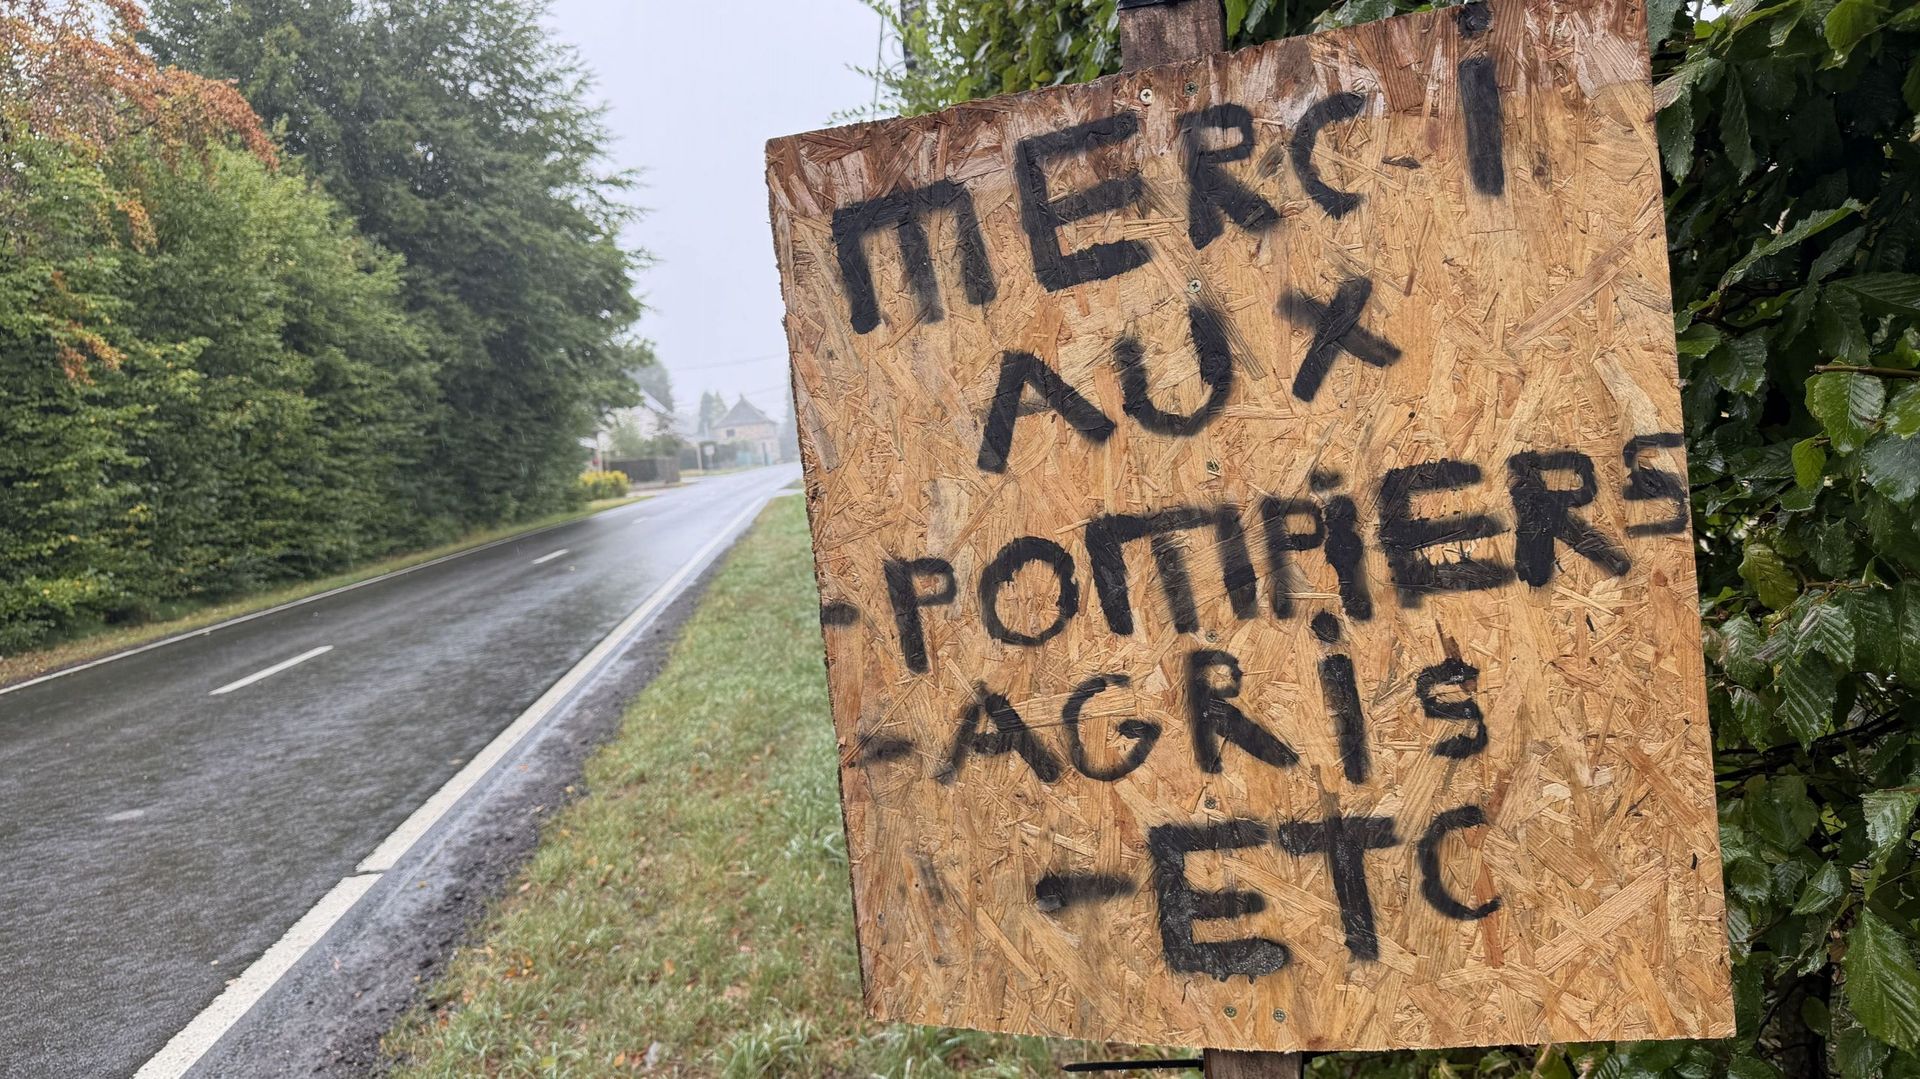 MERCi
AUX
-POMPiERS
-AGRiS
-ETC